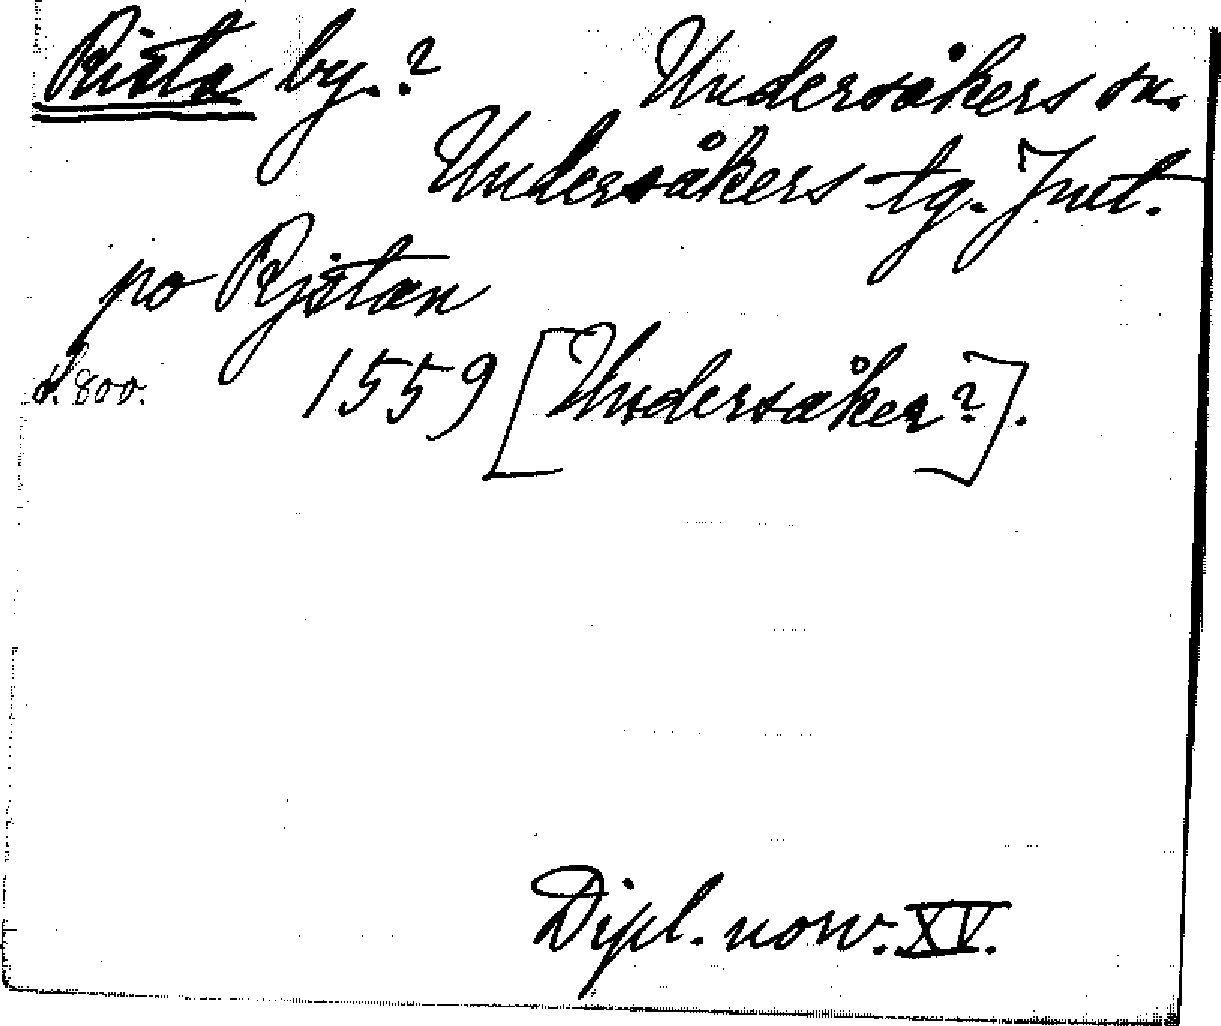 Rista by.? Undersåkers sn.
Undersåkers tg. Jmt.
po Rjstan
s. 800. 1559 [Undersåker?].
Dipl. norv. XV.